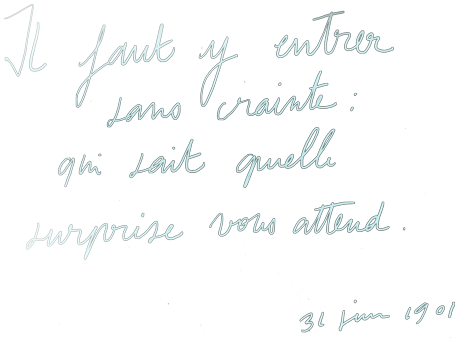 Il faut y entrer
sans crainte :
qui sait quelle
surprise vous attend.
31 juin 1901